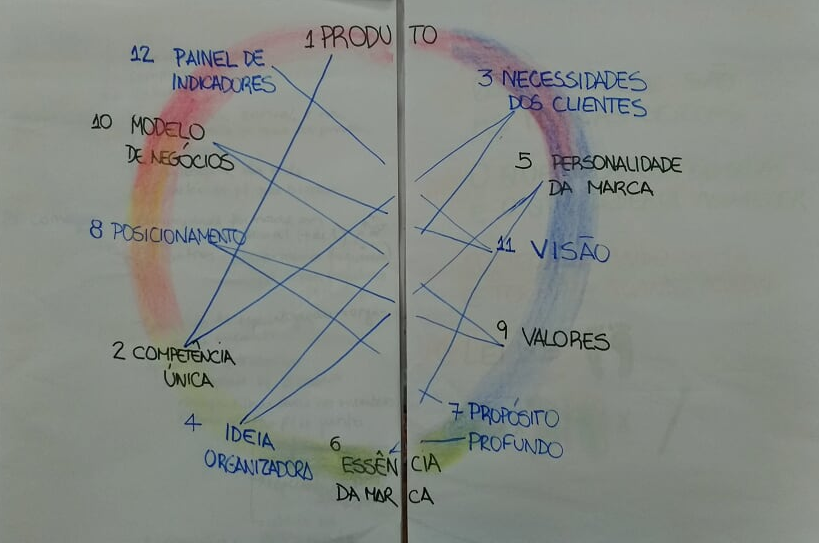 1 PRODUTO
12 PAINEL DE
INDICADORES
3 NECESSIDADES
DOS CLIENTES
10 MODELO
DE NEGÓCIOS
5 PERSONALIDADE
DA MARCA
8 POSICIONAMENTO
11 VISÃO
2 COMPETÊNCIA
ÚNICA
9 VALORES
4 IDEIA
ORGANIZADORA
7 PROPÓSITO
PROFUNDO
6
ESSÊNCIA
DA MARCA